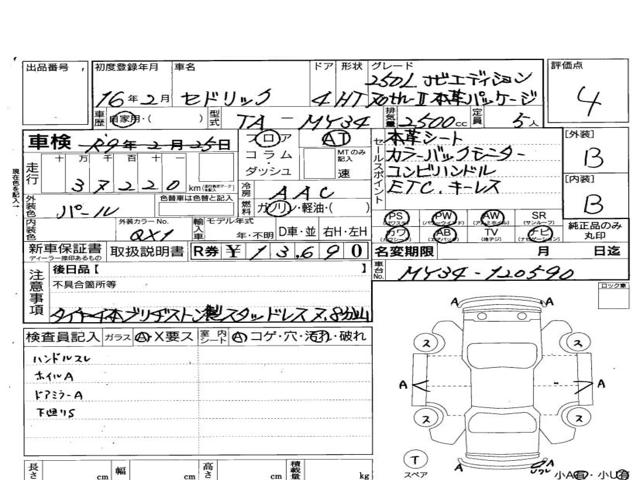 出品番号 初度登録年月 車名 ドア 形状 グレード 評価点
16年2月 セドリック 4 HT 250L ナビエディション
本革パッケージ
4
車歴 自家用・( ) 型式 TA-MY34 排気量 2500cc 定員 5人
車検 R7年2月25日 フロア AT セールスポイント 本革シート [外装]
コラム・ MTのみ記入 カラーバックモニター B
走行 十万千百十 ダッシュ 速 コンビハンドル
37220 km 冷房 AAC ETC.キーレス [内装]
現在色を記入
外装色 パール 色替車は色替と記入 燃料 ガソリン・軽油・( ) B
内装色 外装カラーNo. QX1 輸入車 モデル年式 年・不明 D車・並 右H・左H
PS PW AW SR (サンルーフ) 純正品のみ丸印
カワ AB TV ナビ
新車保証書 取扱説明書 R券 ¥13,690 名変期限 月 日迄
ディーラー捺印あるもの
注意事項 後日品【 】 車台No. MY34-120590
不具合箇所等 ロック車
タイヤ4本ブリヂストン製スタッドレス 8分山
検査員記入 ガラス A・X要ス 室内シート A・コゲ・穴・汚れ・破れ
ハンドルスレ
ホイルA
ドアミラーA
下廻りS
A A
ス ス
A A
ス ス
T
スペア
A
小A有・小U有
長さ cm 幅 cm 高さ cm 積載量 kg